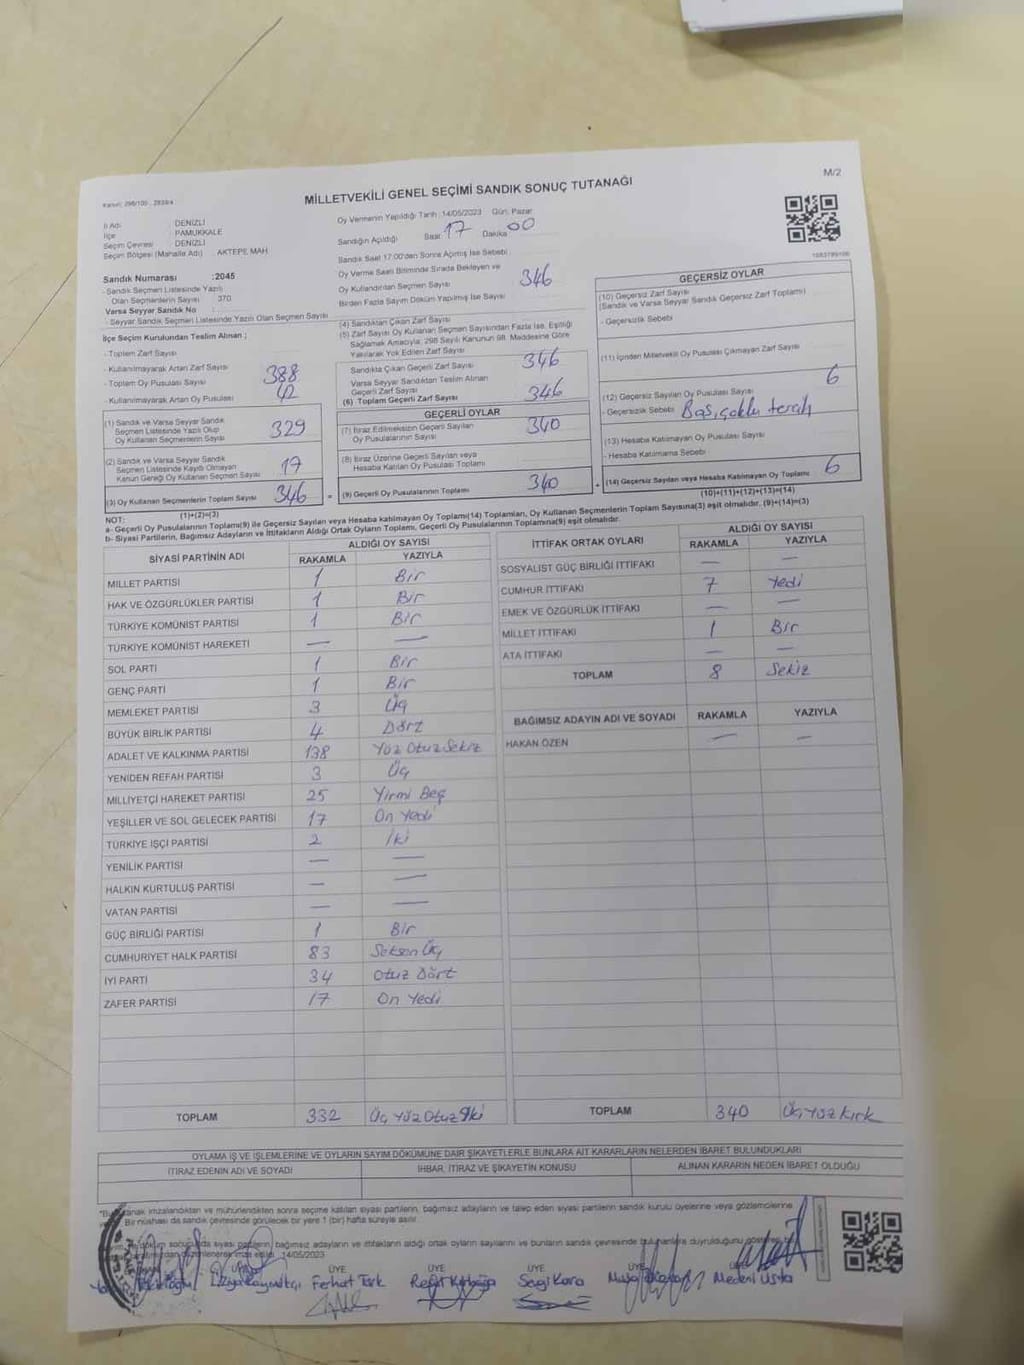 M/2
MİLLETVEKİLİ GENEL SEÇİMİ SANDIK SONUÇ TUTANAĞI
İl Adı : DENİZLİ
İlçe : PAMUKKALE
Seçim Çevresi : DENİZLİ
Seçim Bölgesi (Mahalle Adı) : AKTEPE MAH
Sandık Numarası : 2045
- Sandık Seçmen Listesinde Yazılı
Olan Seçmenlerin Sayısı 370
Varsa Seyyar Sandık No :
- Seyyar Sandık Seçmen Listesinde Yazılı Olan Seçmen Sayısı
İlçe Seçim Kurulundan Teslim Alınan ;
- Toplam Zarf Sayısı
- Kullanılmayarak Artan Zarf Sayısı
- Toplam Oy Pusulası Sayısı 388
- Kullanılmayarak Artan Oy Pusulası 42
(1) Sandık ve Varsa Seyyar Sandık
Seçmen Listesinde Yazılı Olup
Oy Kullanan Seçmenlerin Sayısı 329
(2) Sandık ve Varsa Seyyar Sandık
Seçmen Listesinde Kayıtlı Olmayan
Kanun Gereği Oy Kullanan Seçmen Sayısı 17
(3) Oy Kullanan Seçmenlerin Toplam Sayısı 346
(1)+(2)=(3)
Oy Vermenin Yapıldığı Tarih :14/05/2023 Gün: Pazar
Sandığın Açıldığı Saat 17 Dakika 00
Sandık Saat 17:00'den Sonra Açılmış İse Sebebi
Oy Verme Saati Bitiminde Sırada Bekleyen ve
Oy Kullandırılan Seçmen Sayısı
Birden Fazla Sayım Döküm Yapılmış İse Sayısı
(4) Sandıktan Çıkan Zarf Sayısı 346
(5) Zarf Sayısı Oy Kullanan Seçmen Sayısından Fazla İse, Eşitliği
Sağlamak Amacıyla; 298 Sayılı Kanunun 98. Maddesine Göre
Yakılarak Yok Edilen Zarf Sayısı
Sandıkta Çıkan Geçerli Zarf Sayısı 346
Varsa Seyyar Sandıktan Teslim Alınan
Geçerli Zarf Sayısı
(6) Toplam Geçerli Zarf Sayısı 346
GEÇERLİ OYLAR
(7) İtiraz Edilmeksizin Geçerli Sayılan
Oy Pusulalarının Sayısı 340
(8) İtiraz Üzerine Geçerli Sayılan veya
Hesaba Katılan Oy Pusulası Toplamı
= (9) Geçerli Oy Pusulalarının Toplamı 340
GEÇERSİZ OYLAR
(10) Geçersiz Zarf Sayısı
(Sandık ve Varsa Seyyar Sandık Geçersiz Zarf Toplamı)
- Geçersizlik Sebebi
(11) İçinden Milletvekili Oy Pusulası Çıkmayan Zarf Sayısı
(12) Geçersiz Sayılan Oy Pusulası Sayısı 6
- Geçersizlik Sebebi Boş, çoklu tercih
(13) Hesaba Katılmayan Oy Pusulası Sayısı
- Hesaba Katılmama Sebebi
+ (14) Geçersiz Sayılan veya Hesaba Katılmayan Oy Toplamı 6
(10)+(11)+(12)+(13)=(14)
NOT:
a- Geçerli Oy Pusulalarının Toplamı(9) ile Geçersiz Sayılan veya Hesaba katılmayan Oy Toplamı(14) Toplamları, Oy Kullanan Seçmenlerin Toplam Sayısına(3) eşit olmalıdır. (9)+(14)=(3)
b- Siyasi Partilerin, Bağımsız Adayların ve İttifakların Aldığı Ortak Oyların Toplamı, Geçerli Oy Pusulalarının Toplamına(9) eşit olmalıdır.
SİYASİ PARTİNİN ADI ALDIĞI OY SAYISI
RAKAMLA YAZIYLA
MİLLET PARTİSİ 1 Bir
HAK VE ÖZGÜRLÜKLER PARTİSİ 1 Bir
TÜRKİYE KOMÜNİST PARTİSİ 1 Bir
TÜRKİYE KOMÜNİST HAREKETİ — —
SOL PARTİ 1 Bir
GENÇ PARTİ 1 Bir
MEMLEKET PARTİSİ 3 Üç
BÜYÜK BİRLİK PARTİSİ 4 Dört
ADALET VE KALKINMA PARTİSİ 138 Yüz Otuz Sekiz
YENİDEN REFAH PARTİSİ 3 Üç
MİLLİYETÇİ HAREKET PARTİSİ 25 Yirmi Beş
YEŞİLLER VE SOL GELECEK PARTİSİ 17 On Yedi
TÜRKİYE İŞÇİ PARTİSİ 2 İki
YENİLİK PARTİSİ — —
HALKIN KURTULUŞ PARTİSİ — —
VATAN PARTİSİ — —
GÜÇ BİRLİĞİ PARTİSİ 1 Bir
CUMHURİYET HALK PARTİSİ 83 Seksen Üç
İYİ PARTİ 34 Otuz Dört
ZAFER PARTİSİ 17 On Yedi
TOPLAM 332 Üç Yüz Otuz İki
İTTİFAK ORTAK OYLARI ALDIĞI OY SAYISI
RAKAMLA YAZIYLA
SOSYALİST GÜÇ BİRLİĞİ İTTİFAKI — —
CUMHUR İTTİFAKI 7 Yedi
EMEK VE ÖZGÜRLÜK İTTİFAKI — —
MİLLET İTTİFAKI 1 Bir
ATA İTTİFAKI — —
TOPLAM 8 Sekiz
BAĞIMSIZ ADAYIN ADI VE SOYADI RAKAMLA YAZIYLA
HAKAN ÖZEN — —
TOPLAM 340 Üç Yüz Kırk
OYLAMA İŞ VE İŞLEMLERİNE VE OYLARIN SAYIM DÖKÜMÜNE DAİR ŞİKAYETLERLE BUNLARA AİT KARARLARIN NELERDEN İBARET BULUNDUKLARI
İTİRAZ EDENİN ADI VE SOYADI İHBAR, İTİRAZ VE ŞİKAYETİN KONUSU ALINAN KARARIN NEDEN İBARET OLDUĞU
imzalandıktan ve mühürlendikten sonra seçime katılan siyasi partilerin, bağımsız adayların ve talep eden siyasi partilerin sandık kurulu üyelerine veya gözlemcilerine
Bir nüshası da sandık çevresinde görülecek bir yere 1 (bir) hafta süreyle asılır.
siyasi partilerin, bağımsız adayların ve ittifakların aldığı ortak oyların sayılarını ve bunların sandık çevresinde
14/05/2023
ÜYE ÜYE ÜYE
Ferhat Sevgi Kara Medeni Usta